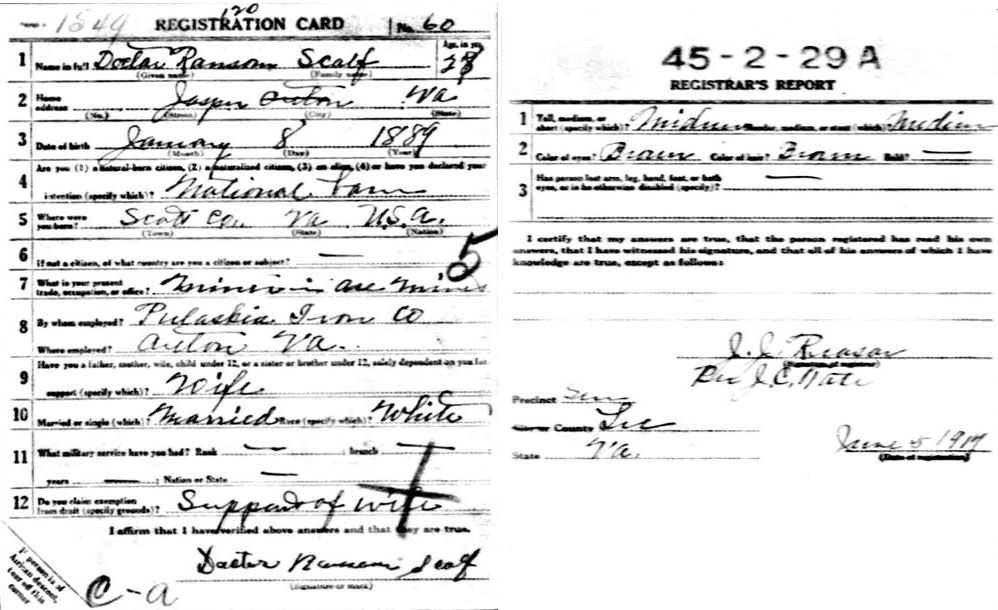 1549 REGISTRATION CARD 120 No. 60
1 Name in full Doctor Ransom Scalf Age, in yrs. 28
(Given name) (Family name)
2 Home address Jasper Va
(No.) (Street) (City) (State)
3 Date of birth January 8 1889
(Month) (Day) (Year)
Are you (1) a natural-born citizen, (2) a naturalized citizen, (3) an alien, (4) or have you declared your
4 intention (specify which)? National
5 Where were you born? Scott Co. Va U.S.A.
(Town) (State) (Nation)
6 If not a citizen, of what country are you a citizen or subject? —
5
7 What is your present trade, occupation, or office? Miner in Ore Mines
8 By whom employed? Pulaskia Iron Co
Where employed? Va.
9 Have you a father, mother, wife, child under 12, or a sister or brother under 12, solely dependent on you for
support (specify which)? Wife
10 Married or single (which)? Married Race (specify which)? White
11 What military service have you had? Rank — ; branch —
years — ; Nation or State —
12 Do you claim exemption from draft (specify grounds)? Support of wife
I affirm that I have verified above answers and that they are true.
Docter Ransom Scalf
(Signature or mark)
If person is of
African descent,
tear off this
corner
C-a
45-2-29 A
REGISTRAR'S REPORT
1 Tall, medium, or short (specify which)? Midium Slender, medium, or stout (which)? Medium
2 Color of eyes? Brown Color of hair? Brown Bald? —
3 Has person lost arm, leg, hand, foot, or both eyes, or is he otherwise disabled (specify)? —
I certify that my answers are true, that the person registered has read his own
answers, that I have witnessed his signature, and that all of his answers of which I have
knowledge are true, except as follows:
J. J.
(Signature of registrar)
Per J. C.
Precinct
City or County Lee
State Va. June 5 1917
(Date of registration)